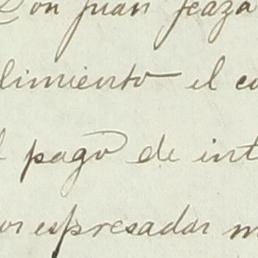 Don Juan Feaza
limiento el c
l pago de int
or espresadas m